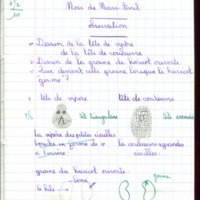 Mois de Mars-Avril
observation
Dessin de la tête de vipère
de la tête de couleuvre
Dessin de la graine de haricot ouverte
Que devient cette graine lorsque le haricot
germe ?
tête de vipère tête de couleuvre
tête triangulaire tête
la vipère des petites écailles
la couleuvre grandes
écailles
graine du haricot ouverte
germe